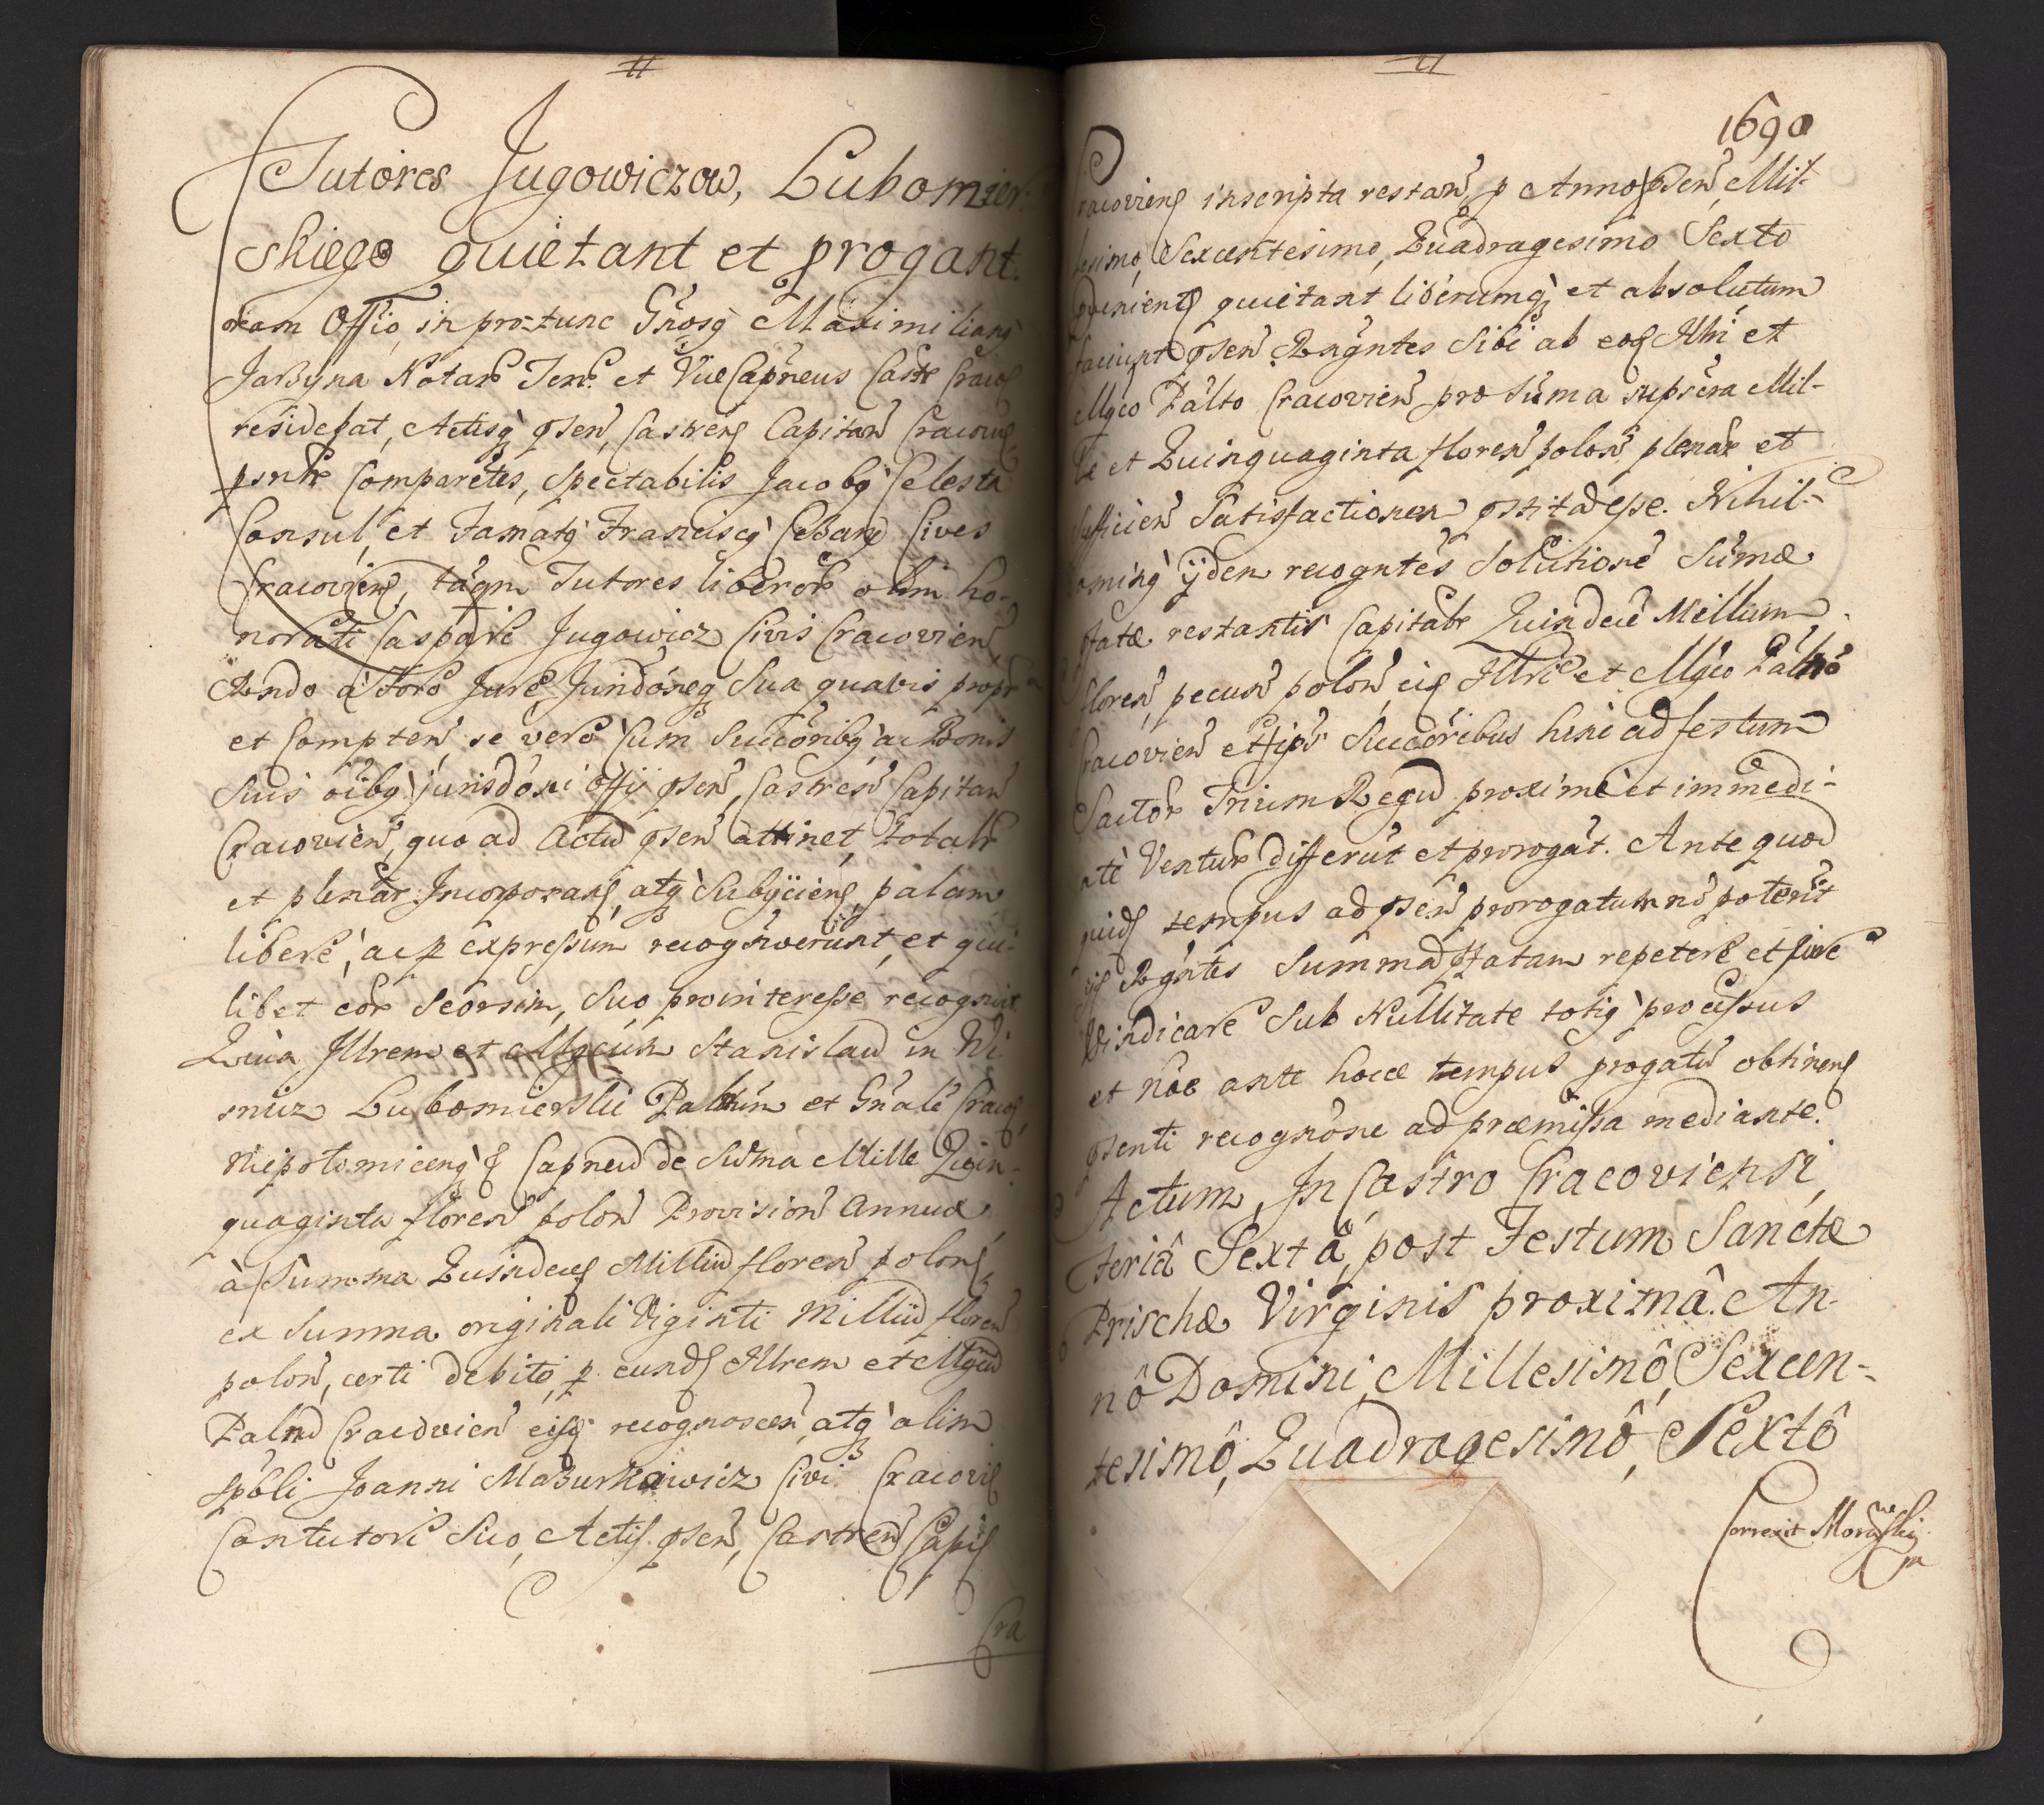 Tutores Jugowiczow, Lubomier-
skiego quietant et progant.
oram Offio, in pro tunc Gñosq Maximilianq
Jarzyna Notarꝰ Terꝰ et Vice Capneus Castꝰ Cracoꝭ
residebat, Actisq pñsen, Castrenꝭ Capitan Cracovieꝭ
Comparẽtes, Spectabilis Jacobq Celesta
Consul, et Famatq Franciscq Cives
Cracovienꝭ, tãqm Tutores liberoꝝ olim ho-
norati Caspari Jugowicz Civis Cracovien
à Foro Jure, Jurisdõneq Sua quavis proprꝰ
et Compten, se vero cum Succõribq ac Bonis
Suis oibq jurisdõni Offij pñsen, Castren Capitan
Cracovien, quo ad Actũ pñsen attinet totalr
et plenar Incorporanꝭ, atq Subijcienꝭ, palam
libere, ac p expressum recognoverunt, et qui-
libet eoꝝ Seorsim, Suo pro interesse recognovit
Quia Illrem et Mgcum Stanislaũ in Wi-
snicz Lubomierski Paltin et Gñale Cracoꝭ,
Niepolomicenq ꝭ Capneũ de Suma Mille Quin-
quaginta floren polon Provision Annuæ,
à Summa Quindecꝭ Milliũ floren polonꝭ,
ex Summa originali Viginti Milliũ floren
polon, certi debiti, p eundꝭ Illrem et Mgcũ
Palnũ Cracovien eisꝭ recognoscen, atq olim
Spbli Joanni Mazurkiewicz Civi Cracovieꝭ
Contutori Suo, Actis pñsen, Castren Capiꝭ
Cra
1690
racovienꝭ inscripta restan, p Anno pñsen, Mil-
lesimo, Sexcentesimo, Quadragesimo Sexto
provenientꝭ quietant liberumq et absolutum
faciunt pñsen Rngntes Sibi ab eoꝭ Illri et
Mgco Palto Cracovien pro Suma supsera Mil-
le et Quinquaginta floren polon plenar et
Sufficien Satisfactionem pñstitã esse. Nihil-
ominq ijdem recogntes Solutione Sumæ
ptatæ restantis Capitalr Quindecẽ Millium
floren, pecun polon, eiꝭ Illri et Mgco Paltno
Cracovien et ips Succõribus hinc ad festum
Sactor Trium Regũ proxime et immedi-
atè Ventur differũt et prorogãt. Ante quod
quidꝭ tempus ad pñsen prorogatum nõ poterũt
ijꝭ Rgntes Summã ptatam repetere et jure
Vindicare Sub Nullitate totiq processus
et nõe ante hocce tempus progatũ obtinenꝭ
pñsenti recognõne ad præmissa mediante.
Actum, In Castro Cracoviensi,
Feriâ Sextâ, post Festum Sanctæ
Prischæ Virginis proximâ. An-
nô Domini, Millesimô, Sexcen-
tesimô, Quadragesimô, Sextô
Correxit Morawski